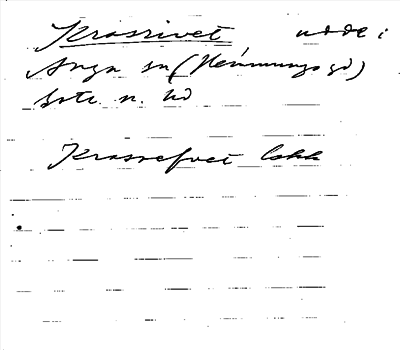 Krassrivet udde:
Anga sn (Hemmungs gd)
Gotl. n. hd
Krasrefvet lokk